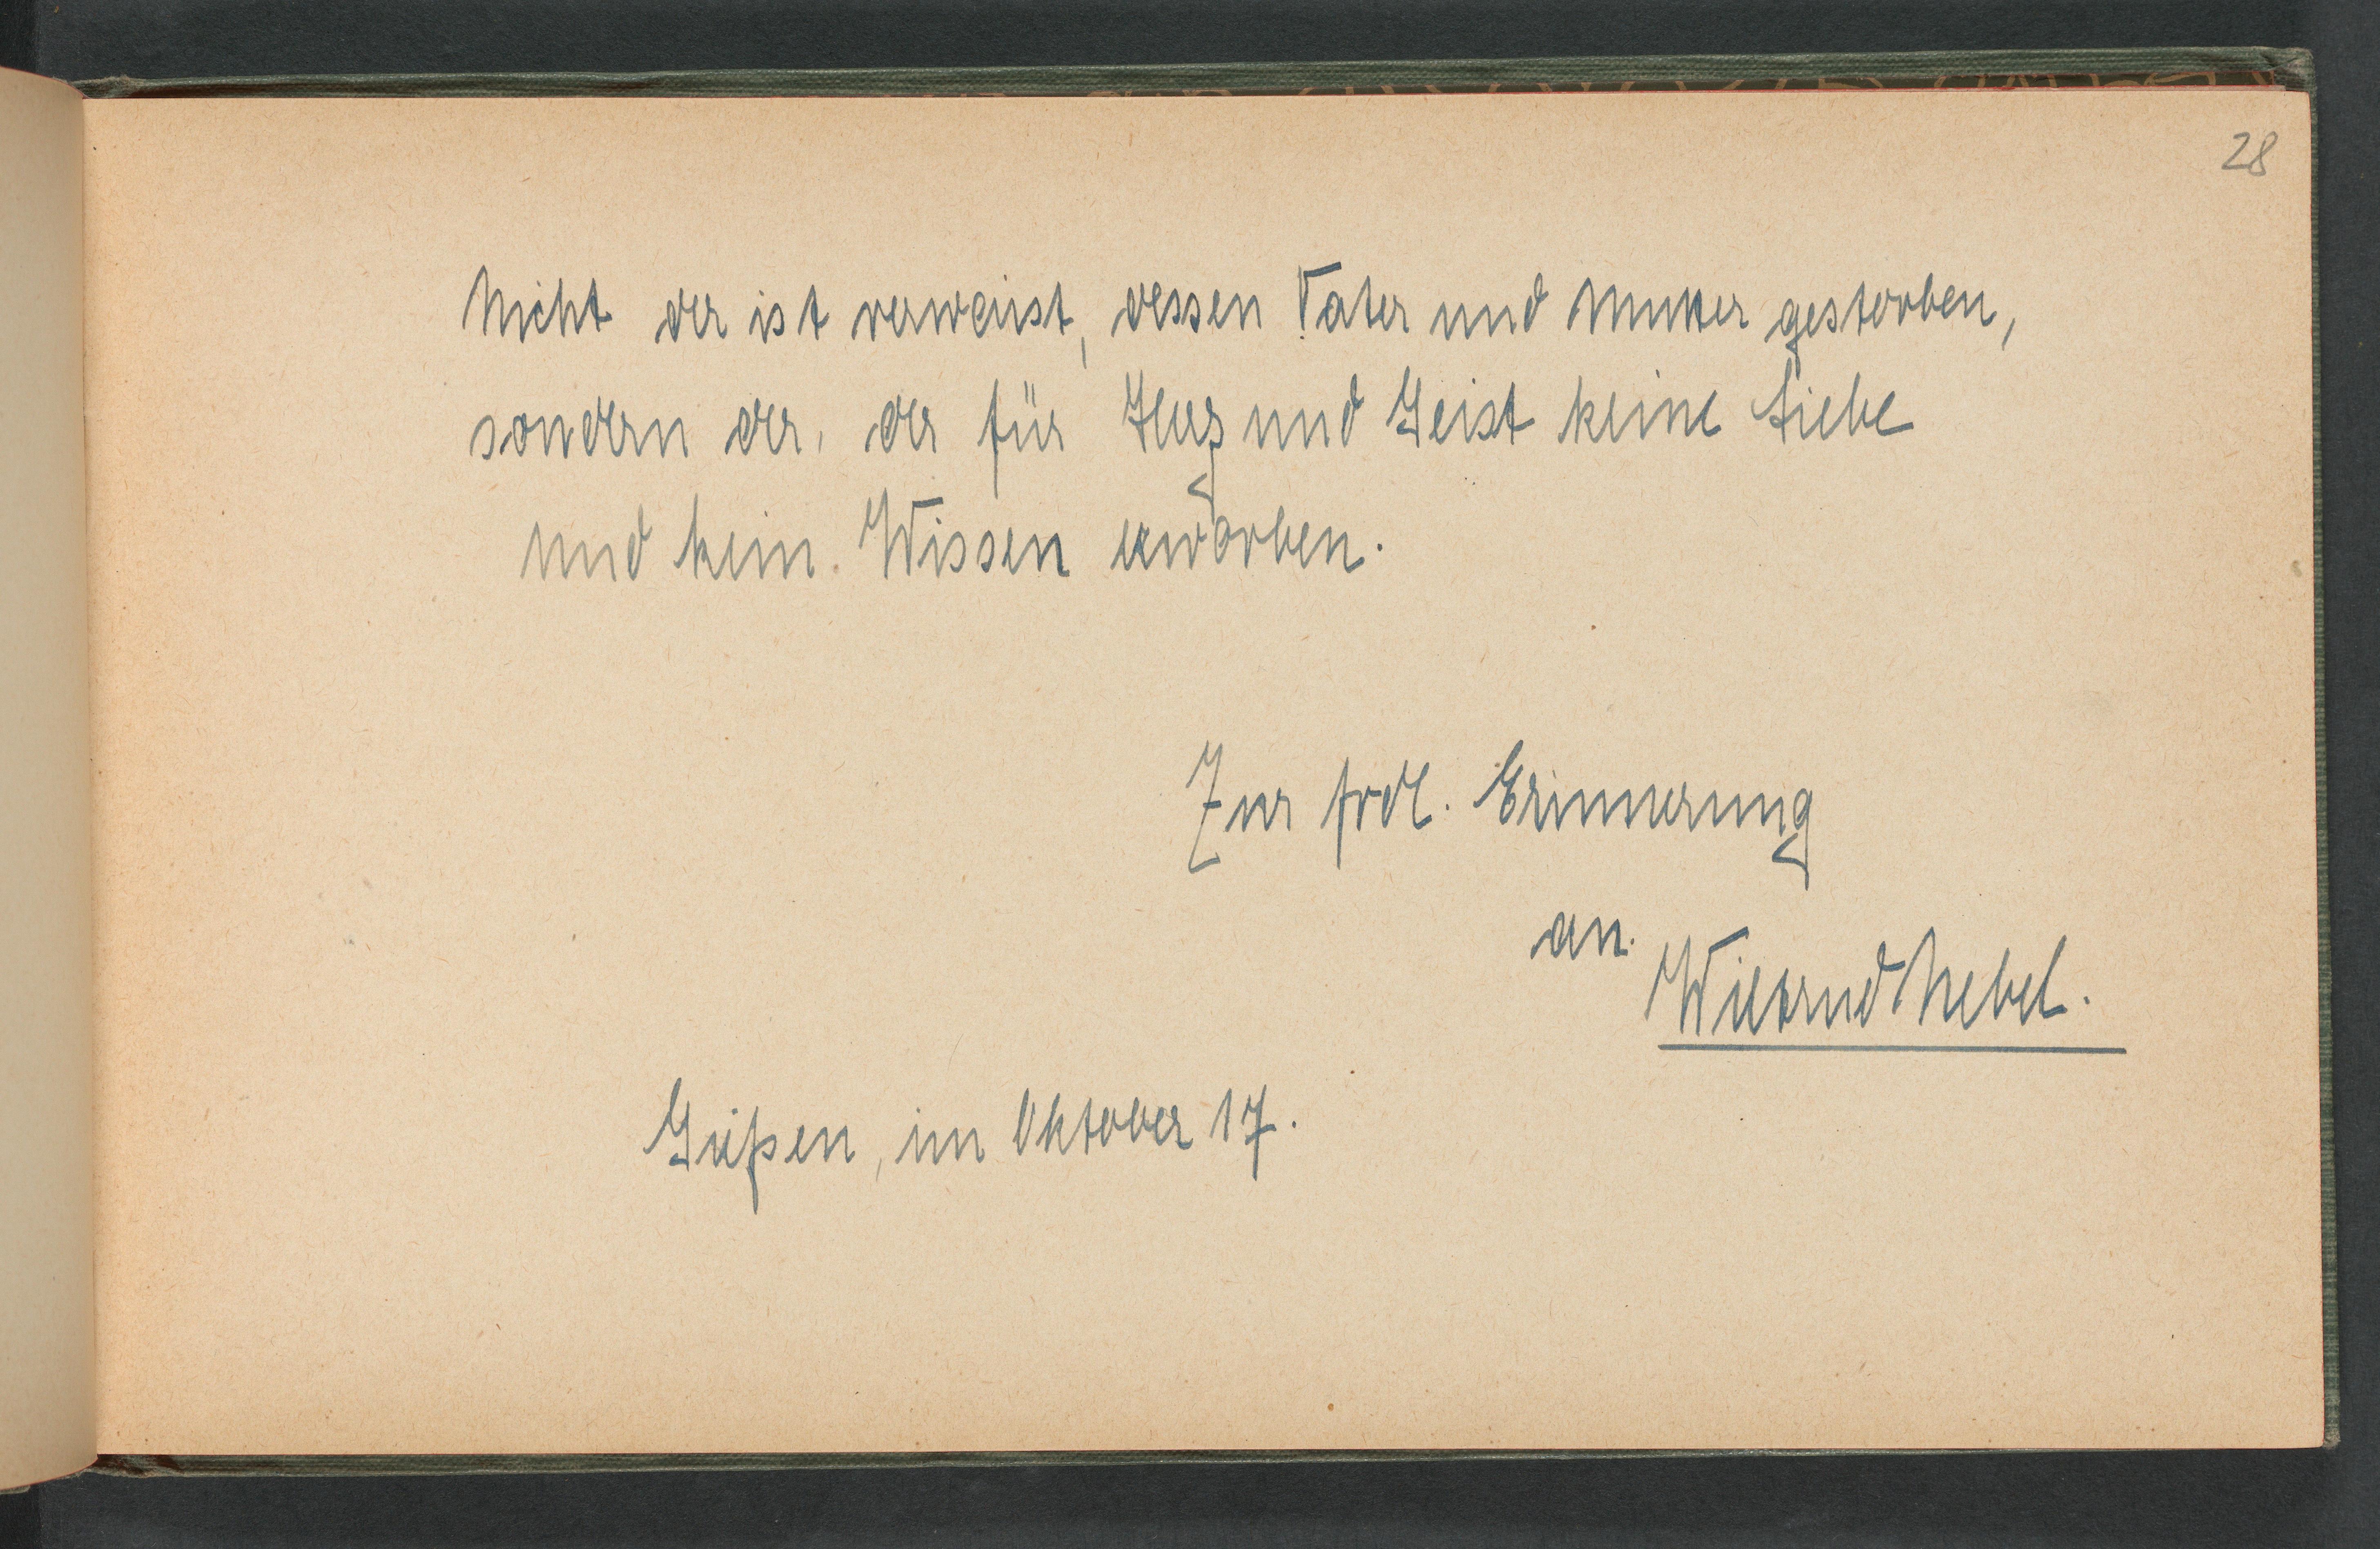 28
Nicht der ist verwaist, dessen Vater und Mutter gestorben,
sondern der, der für Herz und Geist keine Liebe
und kein Wissen erworben.
Zur frdl. Erinnerung
an
Wiltrud Nebel.
Gießen, im Oktober 17.